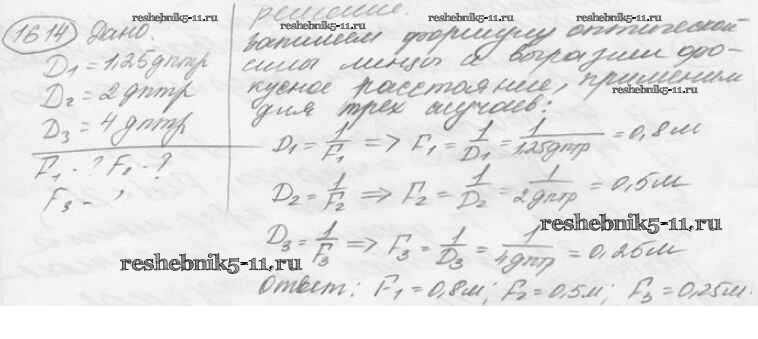 1614 Дано:
D₁ = 1,25 дптр
D₂ = 2 дптр
D₃ = 4 дптр
F₁ - ? F₂ - ?
F₃ - ?
решение
запишем формулу оптической
силы линзы и выразим фо-
кусное расстояние, применим
для трех случаев:
D₁ = 1/F₁ => F₁ = 1/D₁ = 1/1,25 дптр = 0,8 м
D₂ = 1/F₂ => F₂ = 1/D₂ = 1/2 дптр = 0,5 м
D₃ = 1/F₃ => F₃ = 1/D₃ = 1/4 дптр = 0,25 м
Ответ: F₁ = 0,8 м; F₂ = 0,5 м; F₃ = 0,25 м.
reshebnik5-11.ru
reshebnik5-11.ru
reshebnik5-11.ru
reshebnik5-11.ru
reshebnik5-11.ru
reshebnik5-11.ru